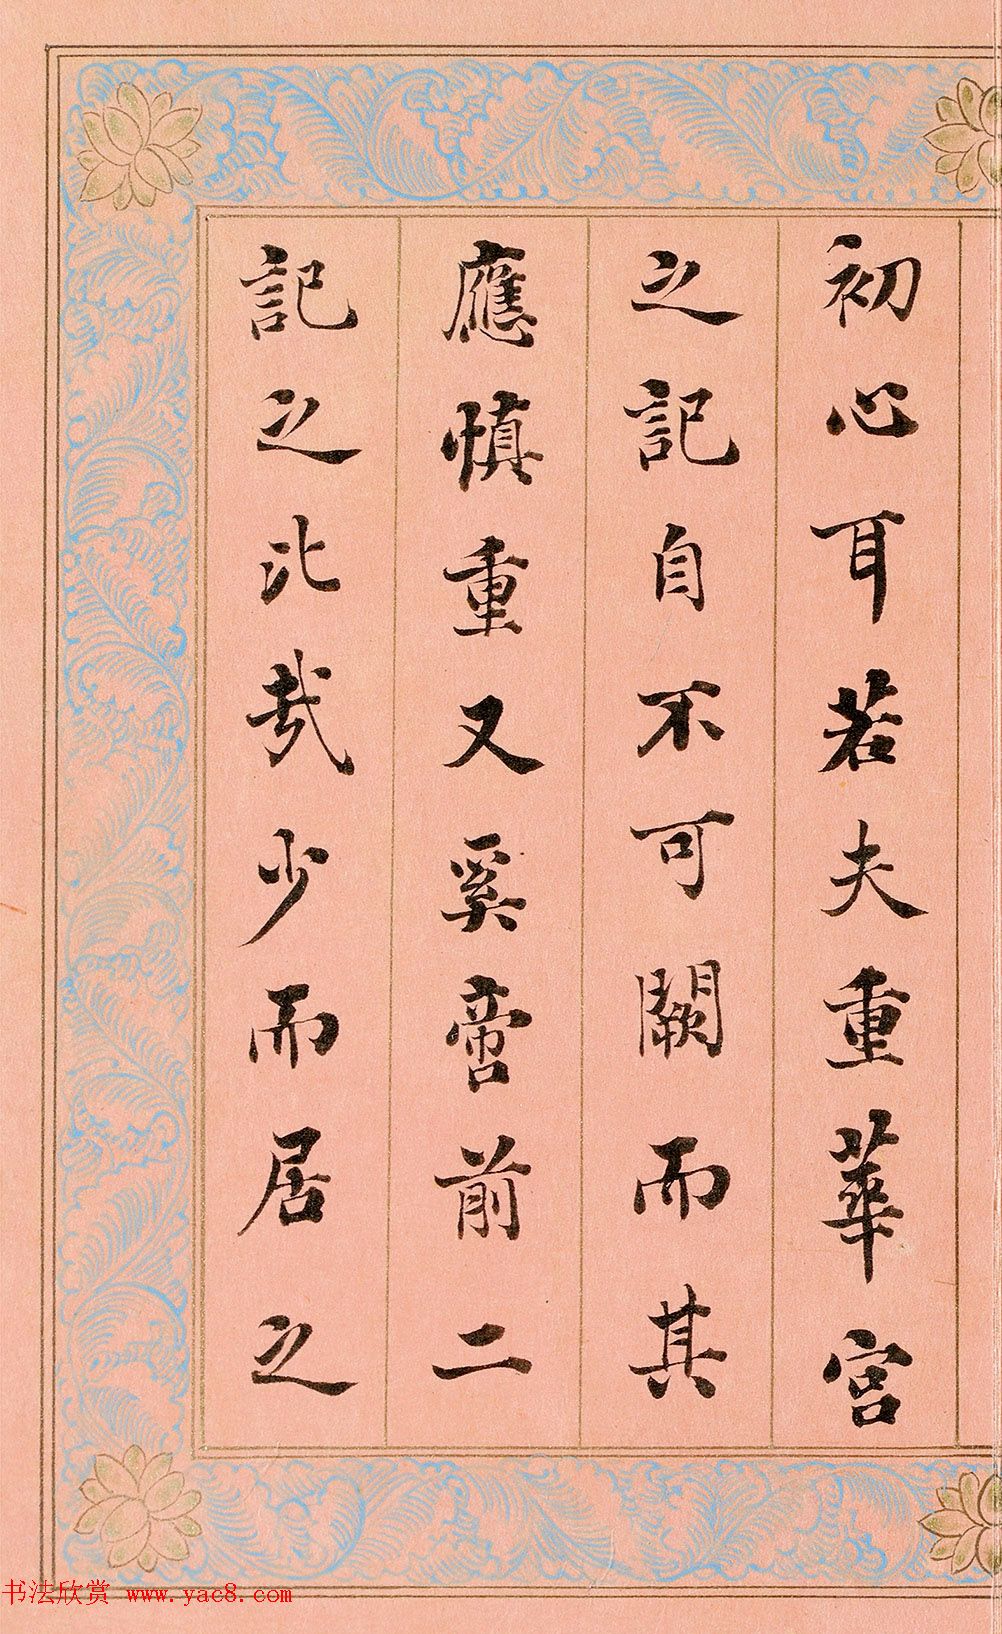 初心耳若夫重華宮
之記自不可闕而其
應慎重又奚啻前二
記之比哉少而居之
书法欣赏 www.yac8.com